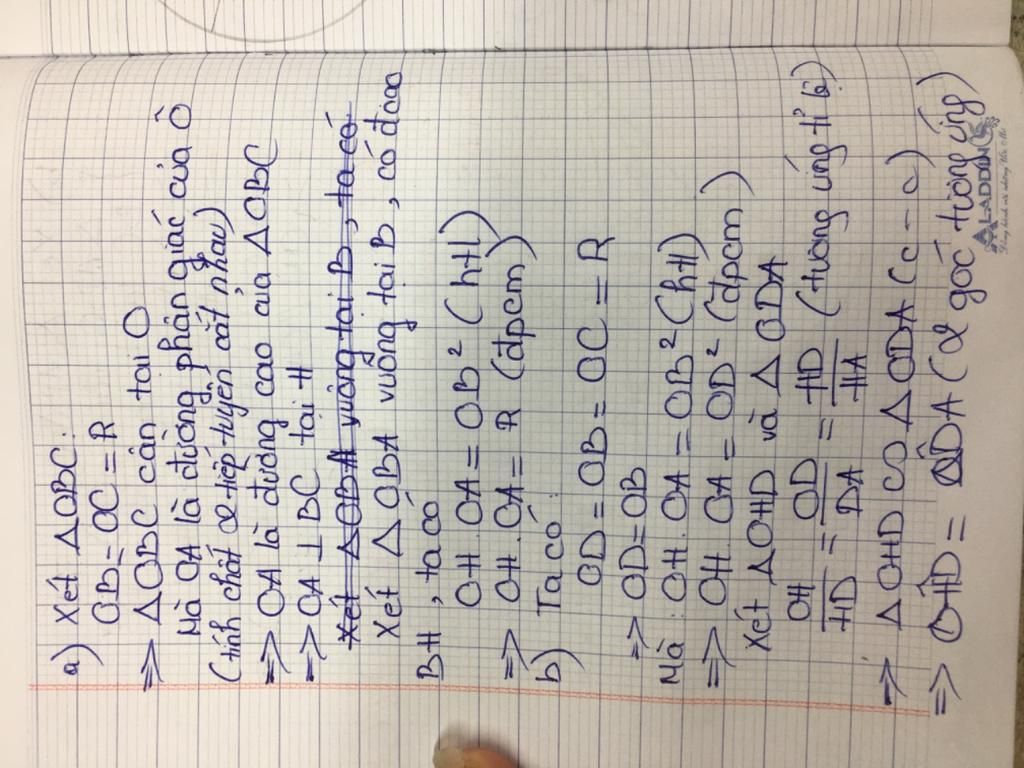 a) Xét ΔOBC:
OB = OC = R
=> ΔOBC cân tại O
Mà OA là đường phân giác của Ô
(tính chất 2 tiếp tuyến cắt nhau)
=> OA là đường cao của ΔOBC
=> OA ⊥ BC tại H
Xét ΔOBA vuông tại B, ta có
Xét ΔOBA vuông tại B, có đ cao
BH, ta có
OH.OA = OB² (htl)
=> OH.OA = R (đpcm)
b) Ta có:
OD = OB = OC = R
=> OD = OB
Mà: OH.OA = OB² (htl)
=> OH.OA = OD² (đpcm)
Xét ΔOHD và ΔODA
OH/HD = OD/DA = HD/HA (tương ứng tỉ lệ)
=> ΔOHD ∽ ΔODA (c-c)
=> OĤD = ODA (2 góc tương ứng)
ALADDIN